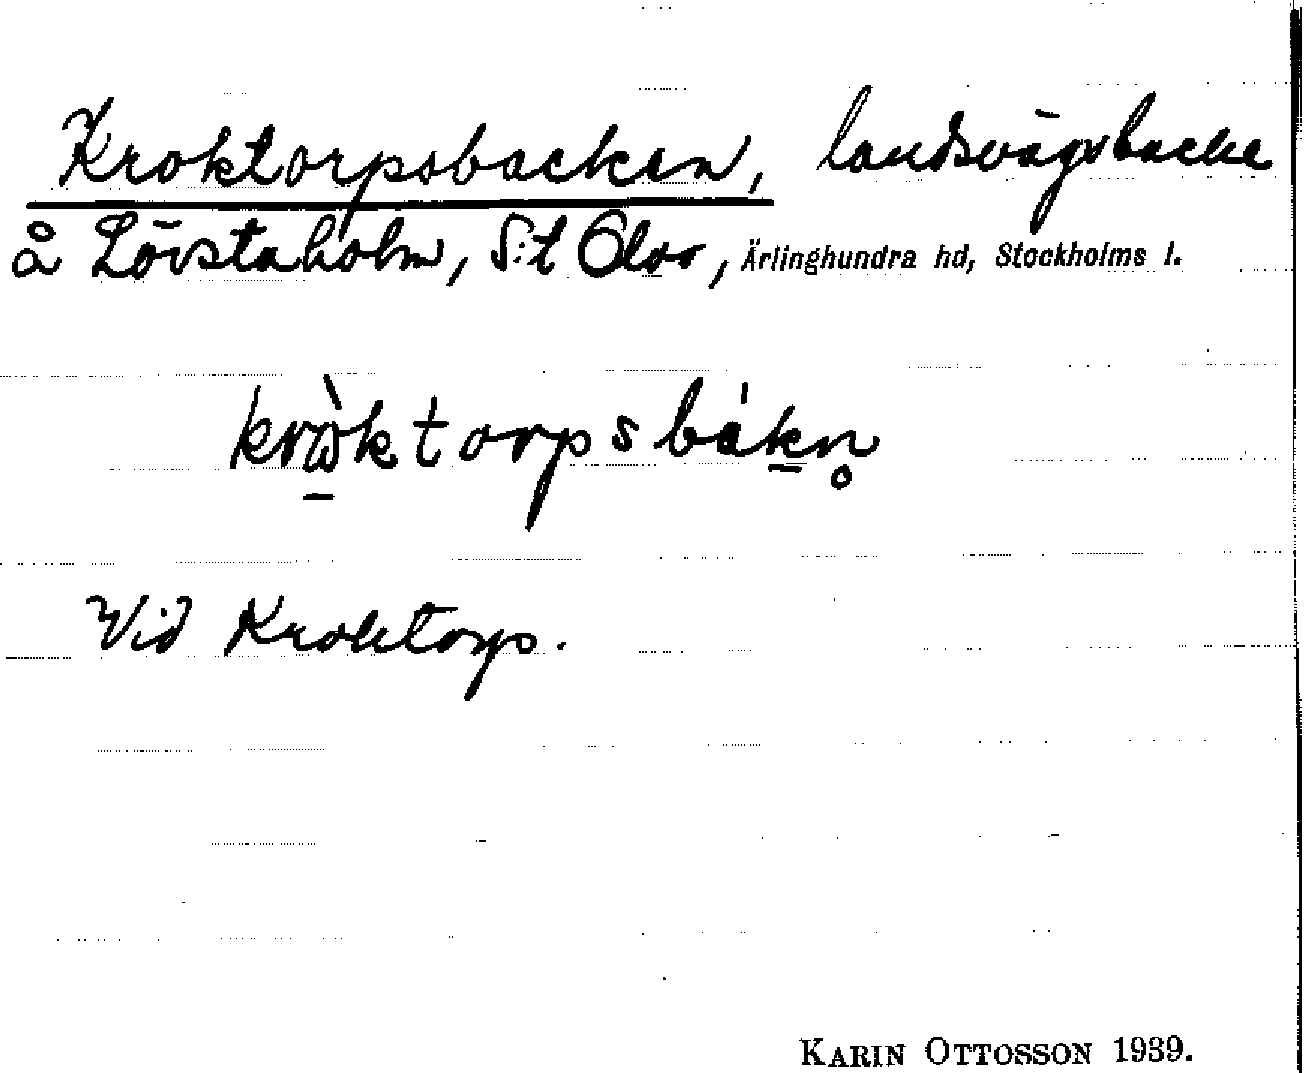 Kroktorpsbacken, landsvägsbacke
å Lövstaholm, S:t Olov, Ärlinghundra hd, Stockholms l.
krὼ̱ktorpsbáḵn̥
Vid Kroktorp.
KARIN OTTOSSON 1939.